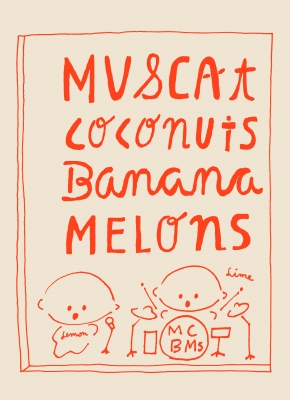 MUSCAt
COCONUtS
Banana
MELONS
Lime
Lemon
MC
BMs